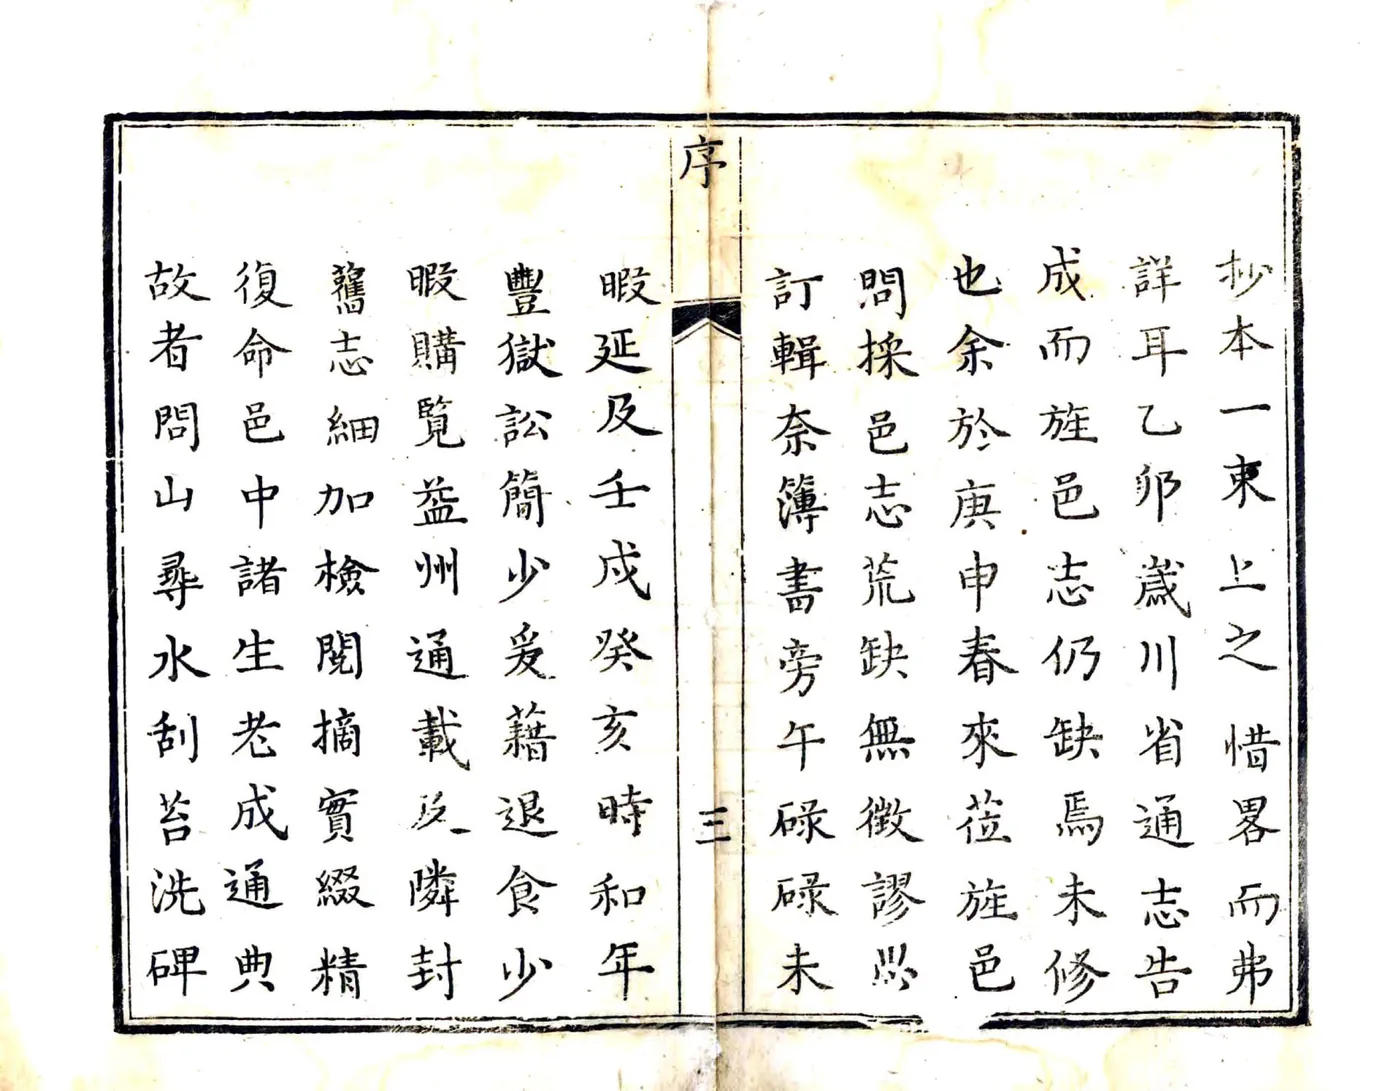 抄本一束上之惜畧而弗
詳耳乙卯歲川省通志告
成而旌邑志仍缺焉未修
也余於庚申春來莅旌邑
問採邑志荒缺無徵謬
訂輯奈簿書旁午碌碌未
序
三
暇延及壬戌癸亥時和年
豐獄訟簡少爰藉退食少
暇購覽益州通載及隣封
舊志細加檢閱摘實綴精
復命邑中諸生老成通典
故者問山尋水刮苔洗碑